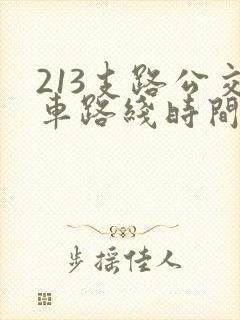 213支路公交
車路綫時間
步摇佳人